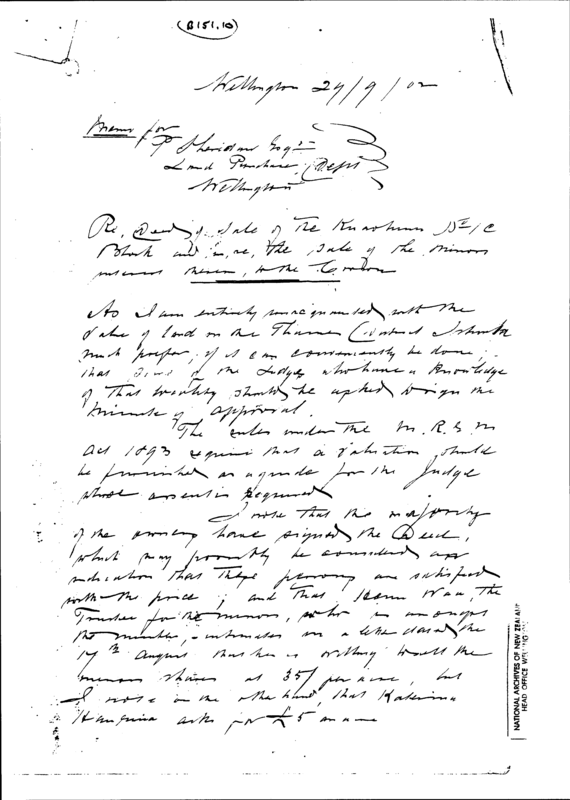 (B151.10)
Wellington 29/9/02
Memo for
P Sheridan Esqre
Land Purchase Dept
Wellington
Re, Deed of Sale of the
Block and in, re, the Sale of the minors
interests therein, to the Crown
As I am entirely unacquainted with the
value of land in the Thames District I should
much prefer, if it can conveniently be done,
that one of the Judges who have a knowledge
of that locality should be asked to sign the
minute of approval.
The rules under the
Act 1893 require that a valuation should
be furnished as a guide for the Judge
whose assent is required
I note that the majority
of the owners have signed the Deed,
which may possibly be considered an
indication that these persons are satisfied
with the price; and that the
Trustee for the minors, who is amongst
the number, intimates in a letter dated the
17th August that he is willing to sell the
minors shares at 35/ per acre, but
I note on the other hand, that
asks for £5 an acre
NATIONAL ARCHIVES OF NEW ZEALAND
HEAD OFFICE